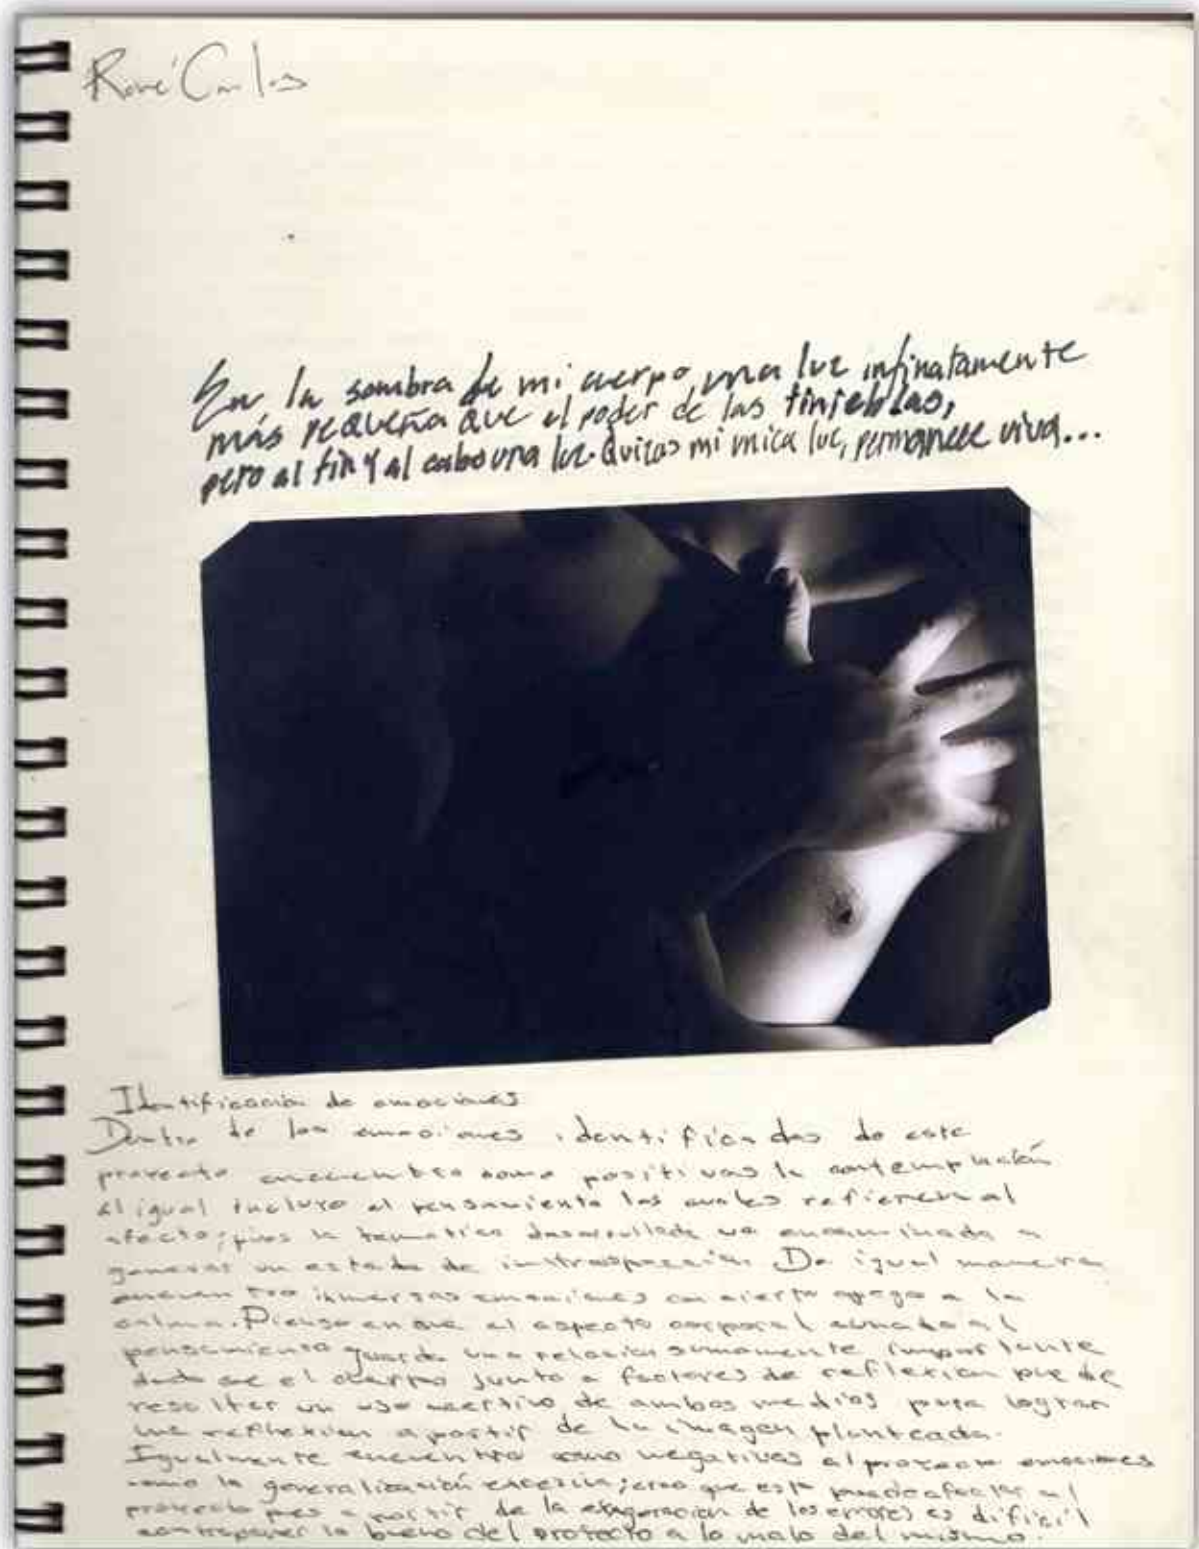 René Carlos
En la sombra de mi cuerpo, una luz infinatamente
más pequeña que el poder de las tinieblas,
pero al fin y al cabo una luz. Quizas mi unica luz, permanece viva...
Identificación de emociones
Dentro de las emociones identificadas de este
proyecto encuentro como positivas la contemplación
al igual incluyo el pensamiento las cuales refieren al
afecto; pues la tematica desarrollada va encaminada a
generar un estado de introspección. De igual manera
encuentro inmersas emociones con cierto apego a la
calma. Pienso en que el aspecto corporal aunado al
pensamiento guarda una relación sumamente importante
dado que el cuerpo junto a factores de reflexion puede
resultar un uso asertivo de ambos medios para lograr
una reflexion a partir de la imagen planteada.
Igualmente encuentro como negativas al proyecto emociones
como la generalización; creo que esto puede afectar al
proyecto pues a partir de la exageración de los errores es dificil
contraponer lo bueno del protecto a lo malo del mismo.